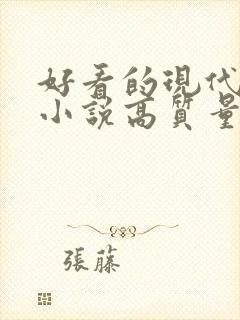 好看的現代
小說高質量
張藤